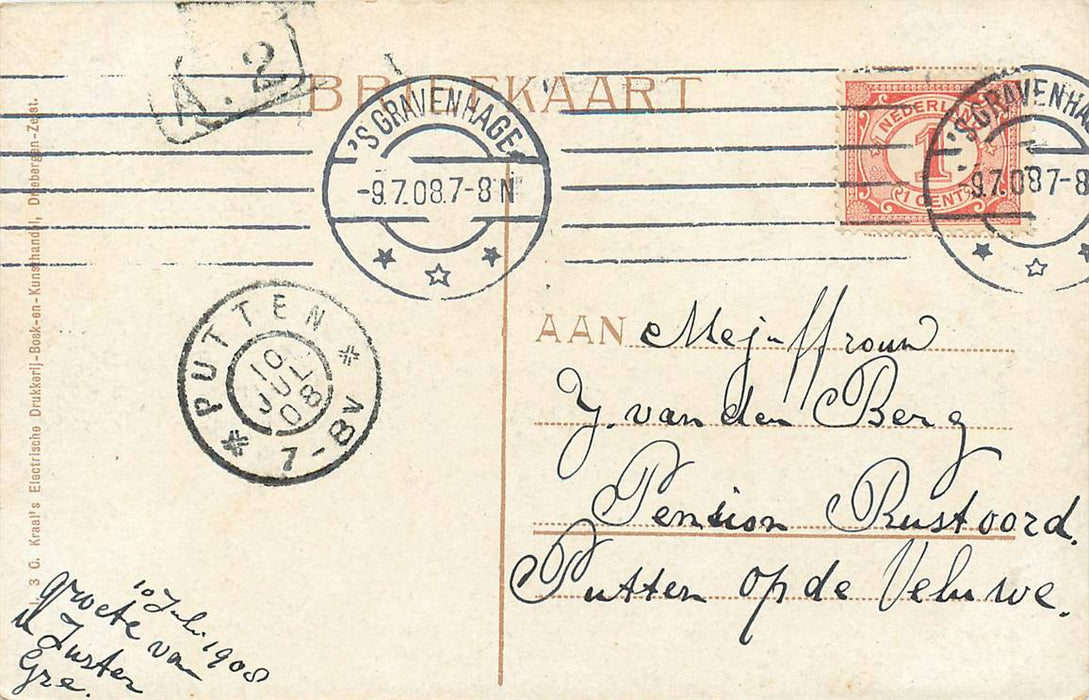 A.2
BRIEFKAART
'S GRAVENHAGE
-9.7.08.7-8N
NEDERLAND
1
1 CENT
'S GRAVENHA
9.7.08 7-8
PUTTEN
10
JUL
08
7-8V
AAN Mejuffrouw
J. van den Berg
Pension Rustoord.
Putten op de Veluwe.
10 Juli 1908
groete van
Zuster
Gre.
3 C. Kraal's Electrische Drukkerij-Boek-en-Kunsthandel, Driebergen-Zeist.